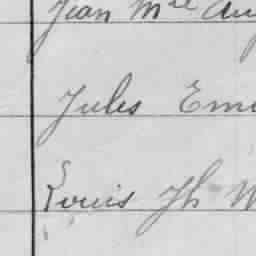 Jean Mel Au
Jules Emi
Louis Jh W